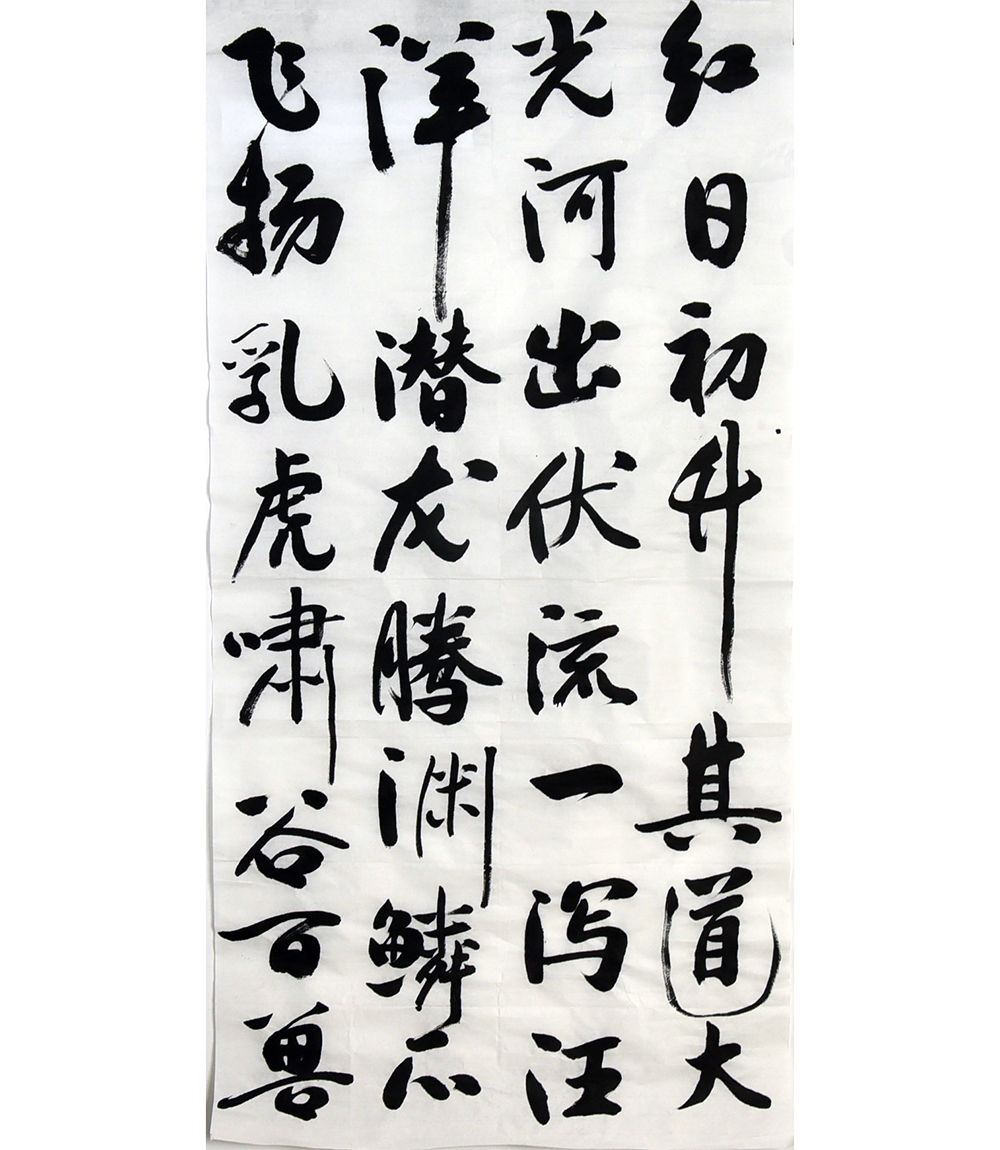 红日初升其道大
光河出伏流一泻汪
洋潜龙腾渊鳞爪
飞扬乳虎啸谷百兽